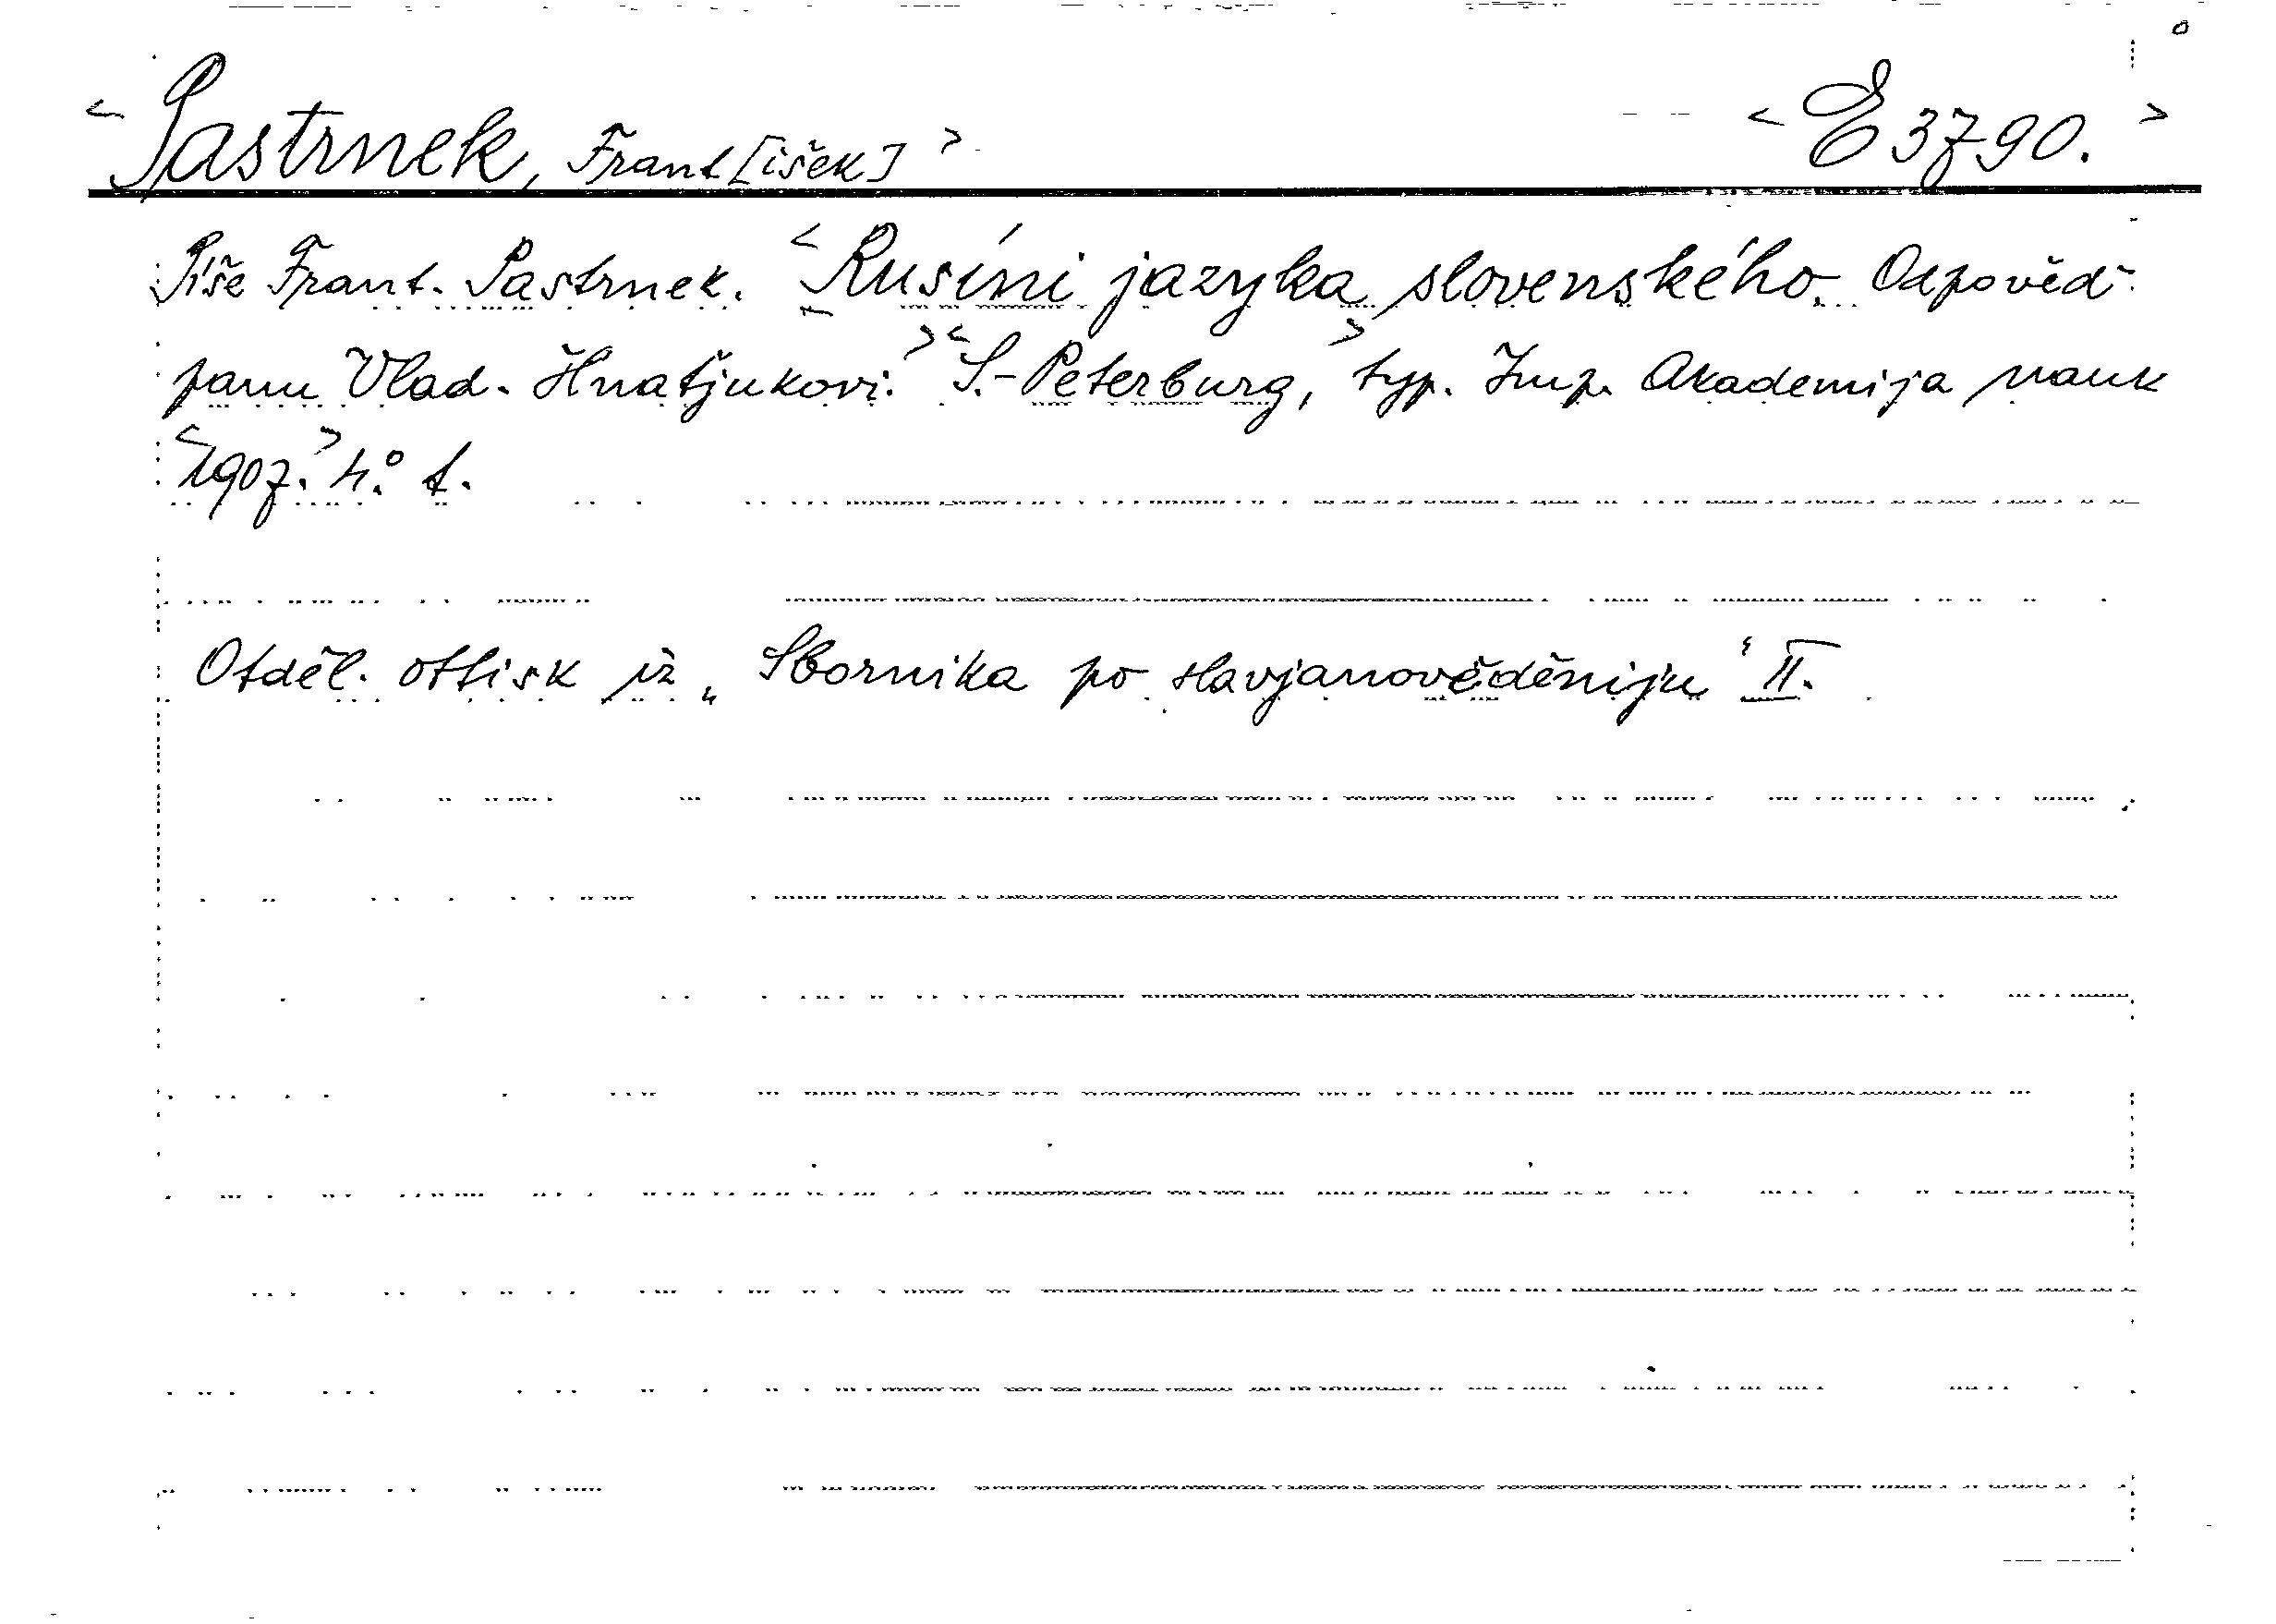 <Pastrnek, Frant[išek]> <E 3790.>
Píše Frant. Pastrnek. <Rusíni jazyka slovenského. Odpověd
panu Vlad. Hnaťjukovi.> <S.-Peterburg,> typ. Imp. Akademija nauk
<1907.> 4.° f.
Otděl. ottisk iz „Sbornika po slavjanověděniju" II.